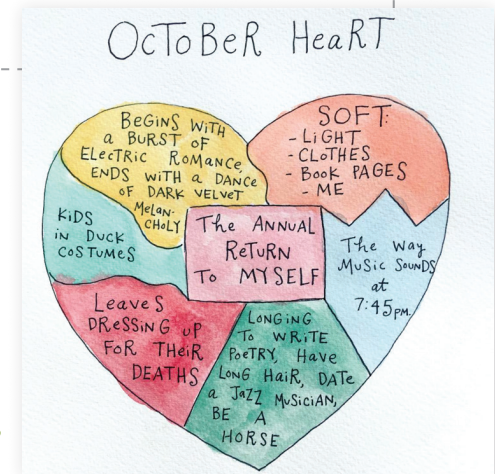 OCTOBER HEART
BEGINS WITH
a BURST OF
ELECTRIC ROMANCE,
ENDS WITH a DANCE
OF DARK VELVET
MELAN-
CHOLY
SOFT:
- LIGHT
- CLOTHES
- BOOK PAGES
- ME
KIDS
in DUCK
COSTUMES
The ANNUAL
ReTURN
To MYSELF
The way
MUSIC SOUNDS
at
7:45pm.
Leaves
DRESSING UP
FOR THeiR
DEATHS
LONGING
To WRiTE
POeTRY, HAVE
LONG HaiR, DATE
a JaZZ MUSICIAN,
BE A
HORSE